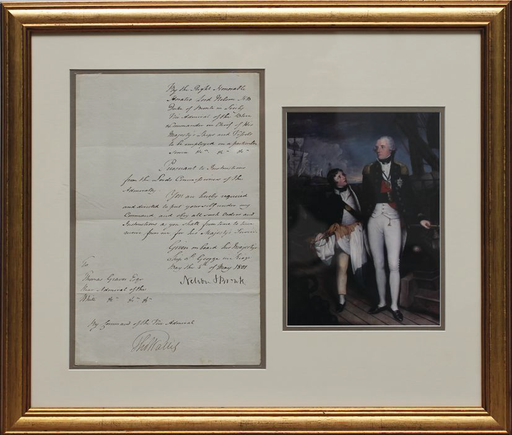 By the Right Honorable
Horatio Lord Nelson K.B.
Duke of Bronte in Sicily
Vice Admiral of the
Commander in Chief of His
Majesty's Ships and Vessels
to be employed on a particular
Service &c. &c. &c.
Pursuant to Instructions
from the Lords Commissioners of the
Admiralty
You are hereby required
and directed to put yourself under my
Command, and obey all such Orders and
Instructions as you shall from time to time
receive from me for His Majesty's Service
Given on board His Majesty's
Ship St George in
Bay the of May 1801
Nelson & Bronte
To
Thomas Graves Esqr
Rear Admiral of the
White &c. &c. &c.
By Command of the Vice Admiral
Thos Wallis